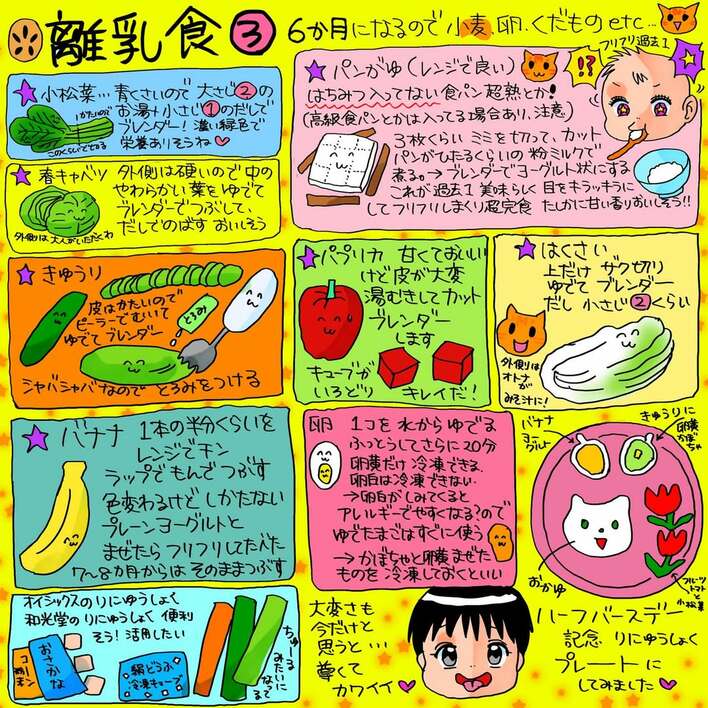 離乳食③
6か月になるので 小麦、卵、くだもの etc…
★小松菜… 青くさいので 大さじ②の
お湯+小さじ①のだしで
ブレンダー！ 濃い緑色で
栄養ありそうね♥
このくらいできる
★春キャベツ 外側は硬いので 中の
やわらかい葉をゆでて
ブレンダーでつぶして、
だしでのばす おいしそう
外側は大人がいただくわ
★パンがゆ(レンジで良い)
はちみつ入ってない食パン 超熟とか!
(高級食パンとかは入ってる場合あり、注意)
3枚くらい ミミを切って、カット
パンがひたるくらいの 粉ミルクで
煮る。→ブレンダーでヨーグルト状にする
これが過去1 美味らしく 目をキラッキラに
してフリフリしまくり超完食 たしかに甘い香りおいしそう!!
フリフリ過去1
!?
★きゅうり
皮はかたいので
ピーラーでむいて
ゆでてブレンダー
とろみ
シャバシャバなので とろみをつける
★パプリカ 甘くておいしい
けど皮が大変
湯むきしてカット
ブレンダー
します
キューブが
いろどり キレイだ！
★はくさい
上だけ ザク切り
ゆでて ブレンダー
だし 小さじ②くらい
外側は
オトナが
みそ汁に！
★バナナ 1本の半分くらいを
レンジでチン
ラップでもんでつぶす
色変わるけど しかたない
プレーンヨーグルトと
まぜたら フリフリしてたべた
7〜8カ月からは そのままつぶす
卵 1コを水からゆでる
ふっとうしてさらに20分
卵黄だけ冷凍できる
卵白は冷凍できない
→卵白がしみてくると
アレルギーでやすくなる?ので
ゆでたまごはすぐに使う
→かぼちゃと卵黄まぜた
ものを冷凍しておくといい
バナナ
ヨーグルト
きゅうりに
卵黄
かぼちゃ
おかゆ
フルーツ
トマトと
小松菜
オイシックスのりにゅうしょく
和光堂のりにゅうしょく 便利
そう！活用したい
コーン
おさかな
絹どうふ
冷凍キューブ
ちゅーる
みたいに
なってる
大変さも
今だけと
思うと…
尊くて
カワイイ♥
ハーフバースデー
記念 りにゅうしょく
プレートに
してみました♥